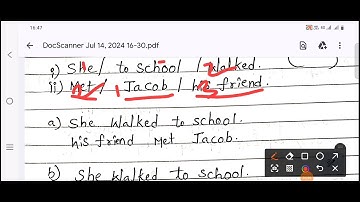 16:47
DocScanner Jul 14, 2024 16-30.pdf
i) She / to school / walked.
ii) Met / Jacob / his friend.
a) She walked to school.
his friend Met Jacob.
b) She walked to school.